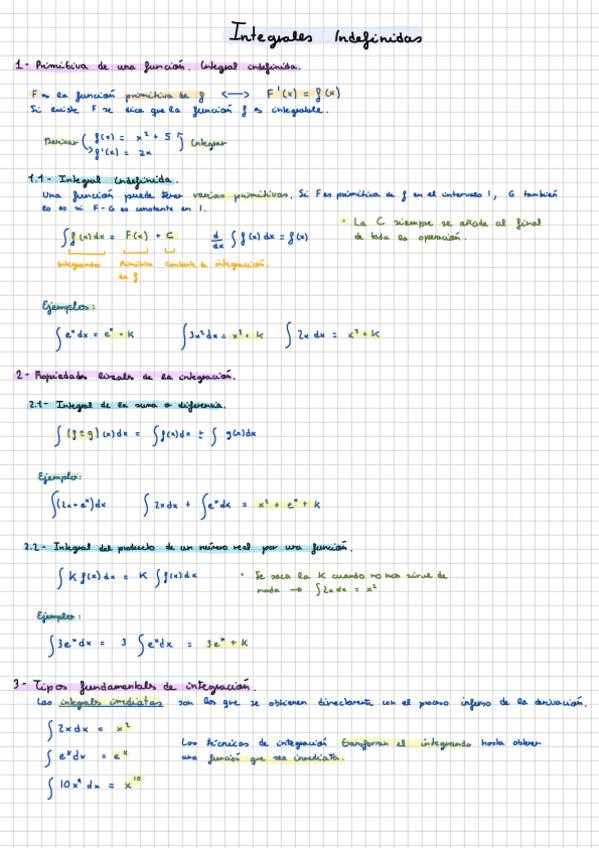 Integrales Indefinidas
1- Primitiva de una función. Integral indefinida.
F es la función primitiva de f <—> F'(x) = f(x)
Si existe F se dice que la función f es integrable.
Derivar f(x) = x² + 5 Integrar
f'(x) = 2x
1.1- Integral Indefinida.
Una función puede tener varias primitivas. Si F es primitiva de f en el intervalo I, G también
lo es si F-G es constante en I.
• La C siempre se añade al final
de toda la operación.
∫f(x)dx = F(x) + C d/dx ∫f(x)dx = f(x)
Integrando Primitiva Constante de integración.
de f
Ejemplos:
∫eˣdx = eˣ + K ∫3x²dx = x³ + K ∫2x dx = x² + K
2- Propiedades lineales de la integración.
2.1- Integral de la suma o diferencia.
∫(f±g)(x)dx = ∫f(x)dx ± ∫g(x)dx
Ejemplo:
∫(2x+eˣ)dx ∫2xdx + ∫eˣdx = x² + eˣ + K
2.2- Integral del producto de un número real por una función.
∫K f(x)dx = K ∫f(x)dx • Se saca la K cuando no nos sirve de
nada → ∫2xdx = x²
Ejemplos:
∫3eˣdx = 3 ∫eˣdx = 3eˣ + K
3- Tipos fundamentals de integración.
Las integrals imediatas son las que se obtienen directamente con el proceso inferso de la derivación.
∫2xdx = x²
Las técnicas de integración transforman el integrando hasta obtener
∫eˣdx = eˣ
una función que sea inmediata.
∫10x⁹dx = x¹⁰